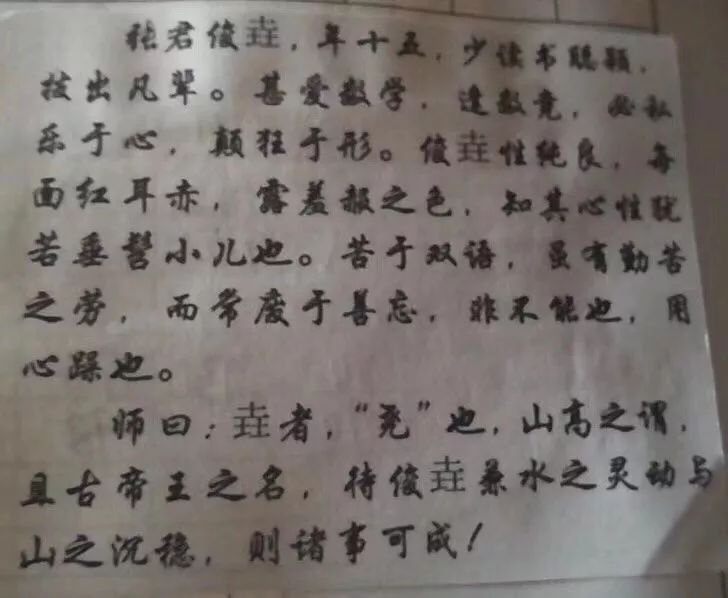 张君俊垚，年十五，少读书聪颖，
拔出凡辈。甚爱数学，逢数竞，必私
乐于心，颠狂于形。俊垚性纯良，每
面红耳赤，露羞赧之色，知其心性犹
若垂髫小儿也。苦于双语，虽有勤苦
之劳，而常废于善忘，非不能也，用
心躁也。
师曰：垚者，“尧”也，山高之谓，
且古帝王之名，待俊垚兼水之灵动与
山之沉稳，则诸事可成！